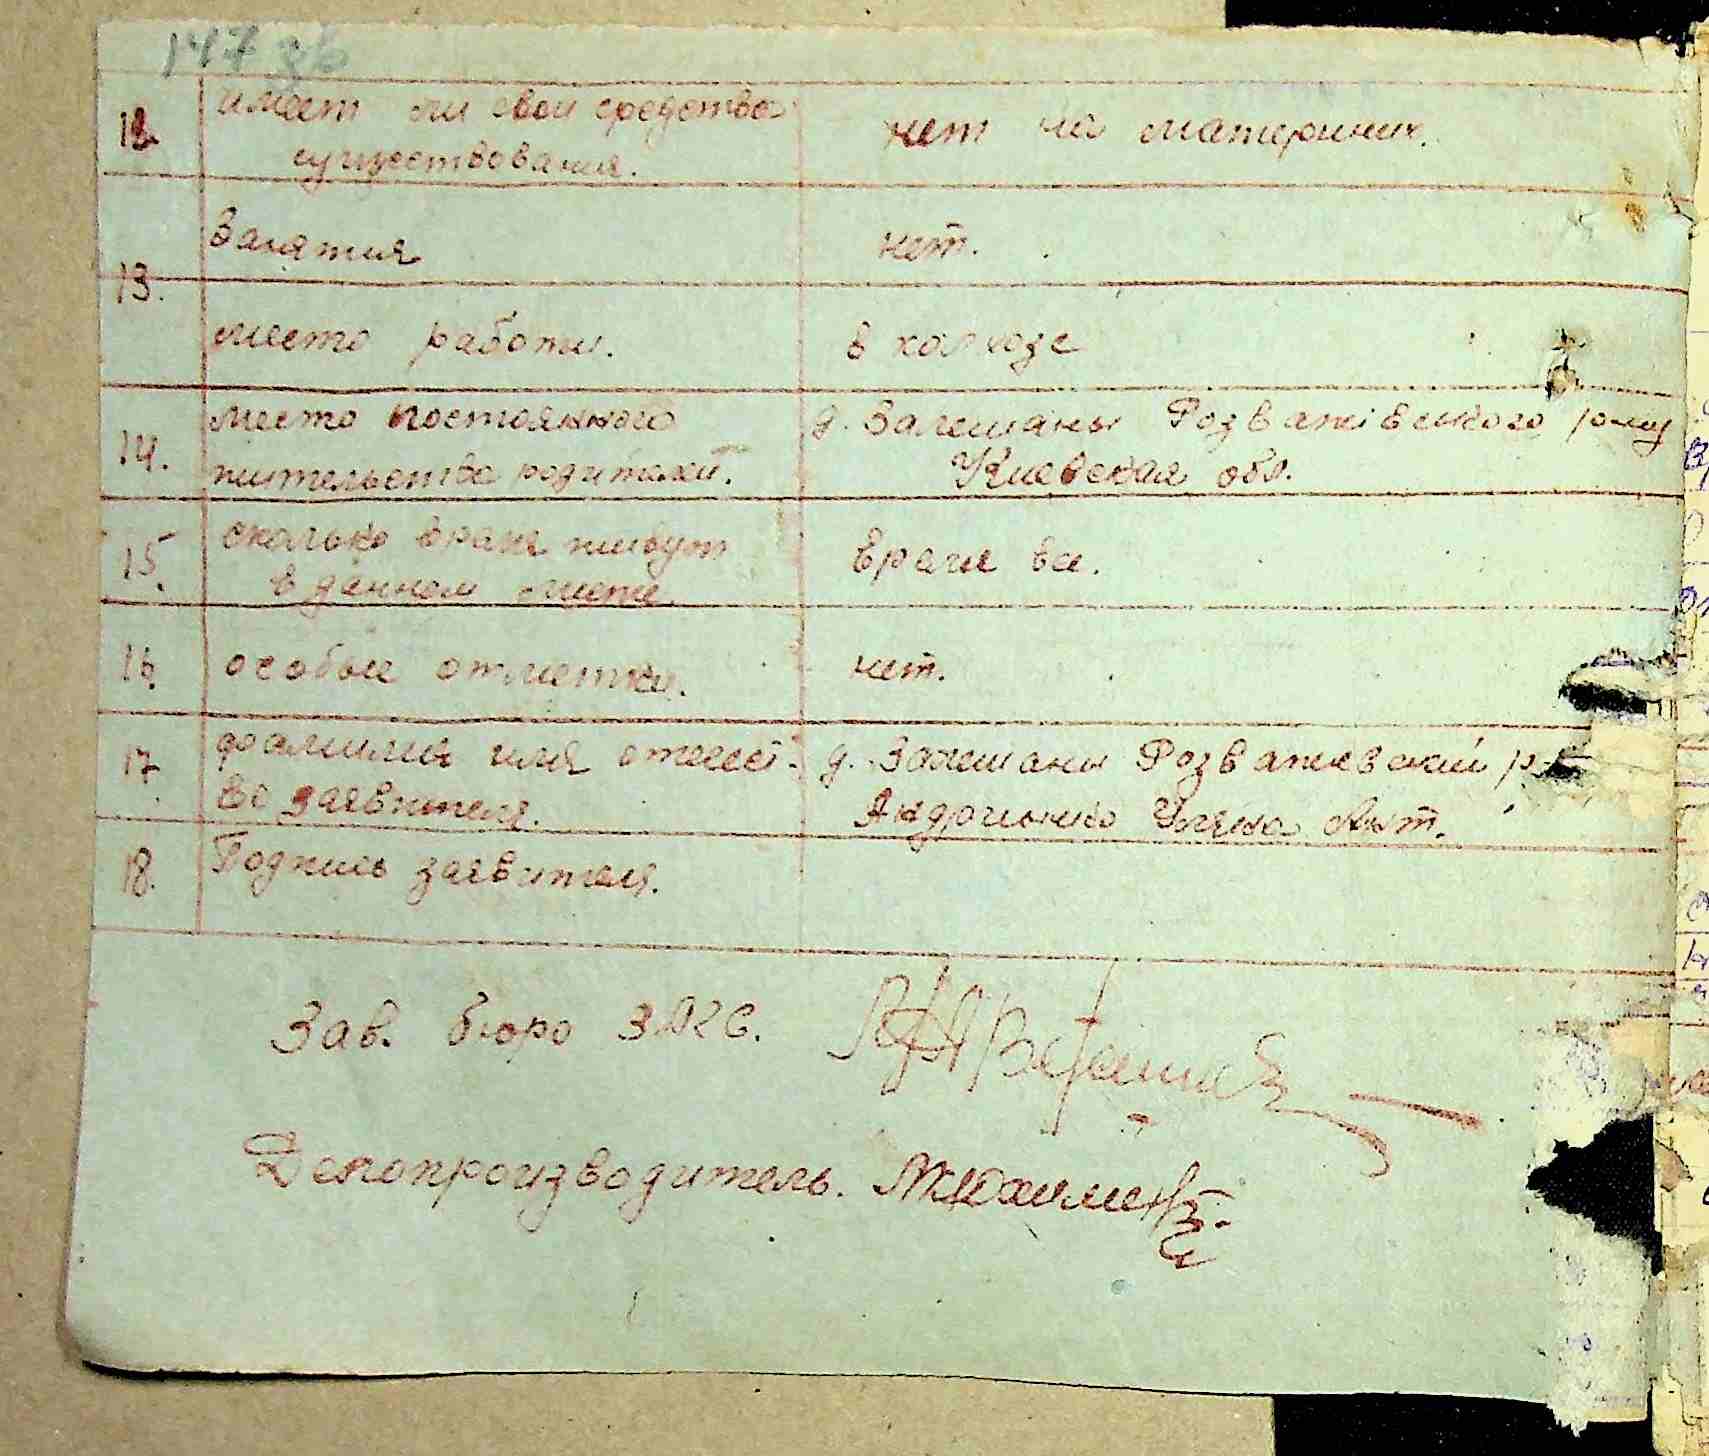 147 зв
12 имеет ли свои средства
существования.
нет на материних.
13. Занятия
нет.
место работы.
в колхозе
14. место постоянного
жительства родителей.
д. Залешаны Розважівського р-ну
Киевская обл.
15. сколько врачи живут
в данном месте
врачи все.
16. особые отметки.
нет.
17. фамилия имя отчест-
во заявителя.
д. Залешаны Розважевский р-н
Андрієнко Уляна Ант.
18. Подпись заявителя.
Зав. бюро ЗАГС.
Делопроизводитель.